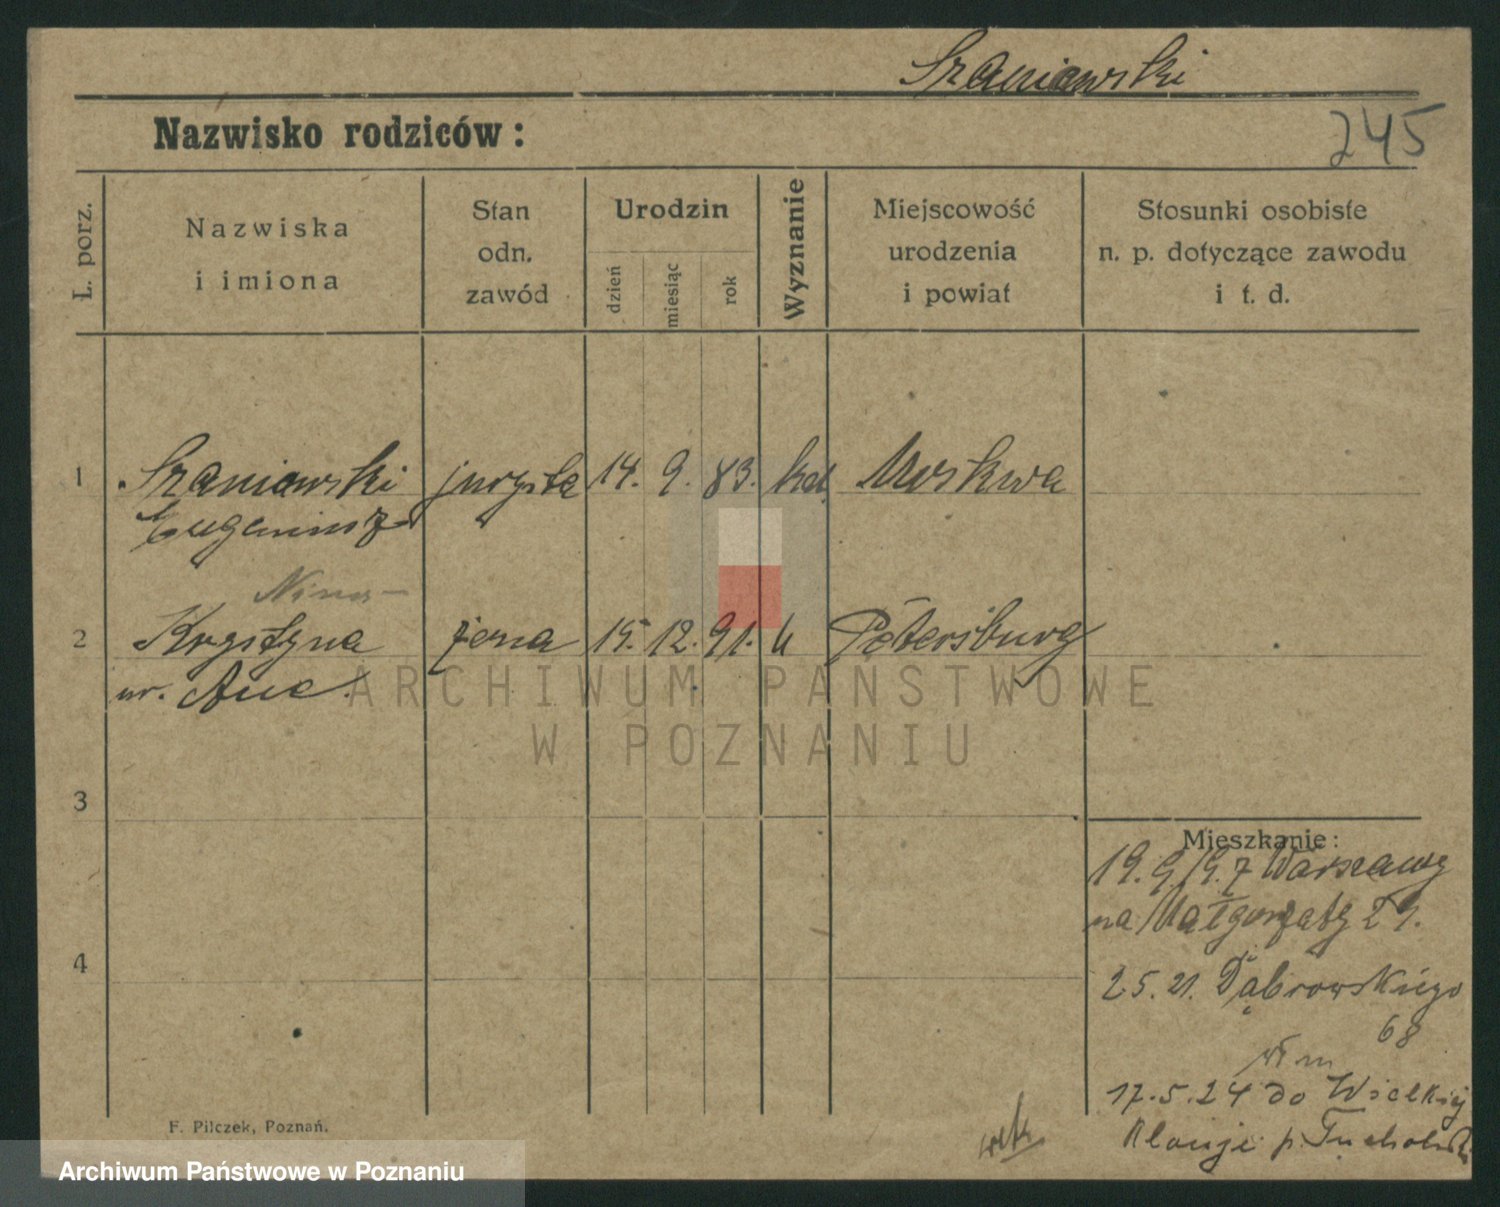 Szaniawski
Nazwisko rodziców:
245
L. porz.
Nazwiska
i imiona
Stan
odn.
zawód
Urodzin
dzień
miesiąc
rok
Wyznanie
Miejscowość
urodzenia
i powiat
Stosunki osobiste
n. p. dotyczące zawodu
i t. d.
1 Szaniawski jurysta 14. 9. 83. kat Moskwa
Eugeniusz
Nina
2 Krystyna żona 15. 12. 91. k Petersburg
ur.
ARCHIWUM PAŃSTWOWE
W POZNANIU
3
Mieszkanie:
19. 9. Warszawy
na Małgorzaty 29.
4
25. 21. Dąbrowskiego
68
17.5.24 do Wielkiej
Klonji p. Tucholski
F. Pilczek, Poznań.
Archiwum Państwowe w Poznaniu